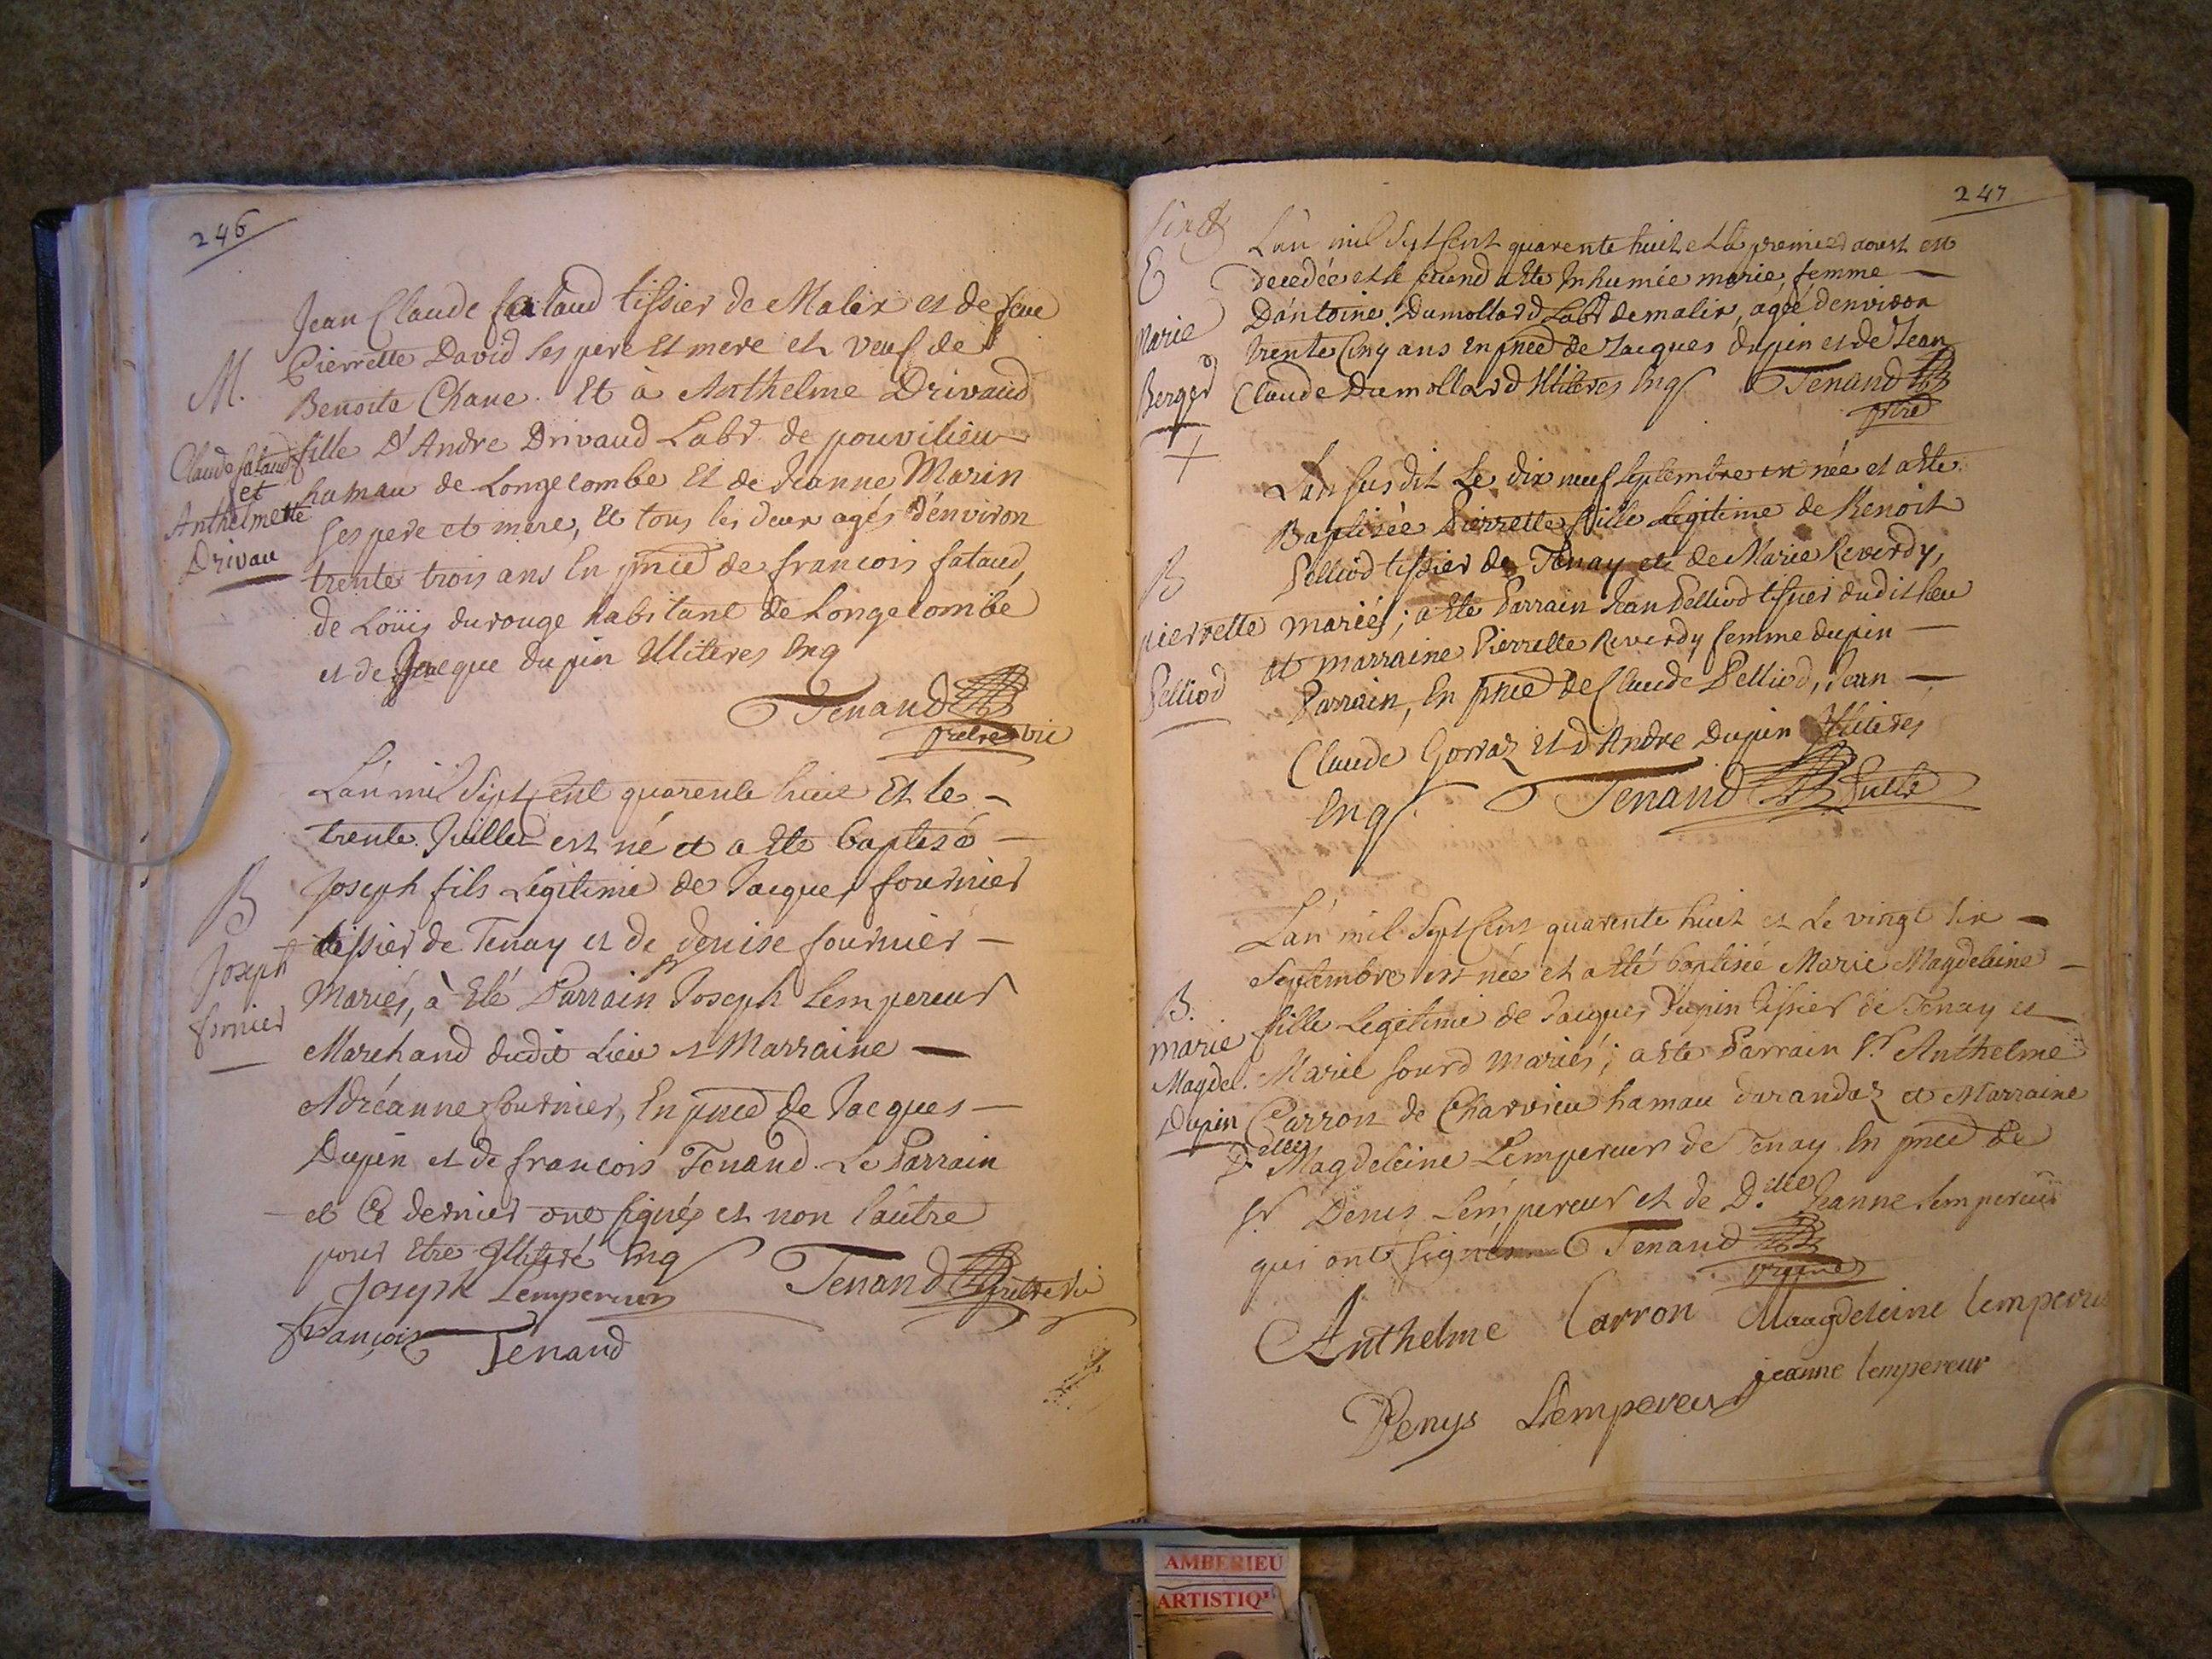 246
Jean Claude fataud tissier de Malix et de feue
Pierrette David ses pere Et mere et veuf de
M.
Benoite Chane. Et à Anthelme Drivaud
Claude fataud
et
Anthelmette
Drivau
fille D'Andre Drivaud Labr. de pouvilieu
hamau de Longecombe Et de Jeanne Marin
ses pere et mere, Et tous les deux agés d'environ
trente trois ans En pnce de francois fataud,
de Loüis durouge habitant de Longecombe
et de Jacque dupin Illiteres Enq
Tenand
pretre vic
L'an mil Sept Cent quarente huit Et le
trente Juillet est né et a Ete baptisé
B
Joseph
fornier
Joseph fils Legitime de Jacques fournier
tissier de Tenay et de denise fournier
Mariés, à Eté Parrain Sr Joseph Lempereur
Marchand dudit Lieu et Marraine
Adréanne fournier, En pnce de Jacques
Dupin et de francois Tenand. Le Parrain
et Ce dernier ont signés et non l'autre
pour Etre Illitéré Enq
Tenand pretre vic
Joseph Lempereur
françois Tenand
247
E
Marie
Berger
L'an mil Sept Cent quarente huit et le premier aoust est
decedée et le second a Ete Inhumée marie, femme
D'antoine Dumollard Labr de malix, ageé d'environ
trente Cinq ans En pnce de Jacques dupin et de Jean
Claude Dumollard Illiteres Enq
Tenand
ptre
B
pierrette
Pelliod
L'an susdit Le dix neuf Septembre est née et a Ete
Baptisée Pierrette fille Legitime de Benoit
Pelliod tissier de Tenay et de Marie Reverdy,
mariés; a Ete Parrain Jean Pelliod tissier dudit lieu
et marraine Pierrette Reverdy femme dupin
Parrain, En pnce de Claude Pelliod, Jean
Claude Gorraz Et d'Andre Dupin Illiterés
Enq.
Tenand
B.
marie
Magdel.
Dupin
L'an mil Sept Cent quarente huit et Le vingt six
Septembre est née et a Eté baptisée Marie Magdeleine
fille Legitime de Jacques Dupin tissier de Tenay et
Marie sourd mariés; a Ete Parrain Sr Anthelme
Carron de Charvieu hamau d'arandaz et Marraine
D.elle Magdeleine Lempereur de Tenay En pnce de
Sr Denis Lempereur et de D.elle Jeanne Lempereur
qui ont signés
Tenand
Anthelme Carron
Maagdeleine lempereur
jeanne lempereur
Denys Lempereur
AMBERIEU
ARTISTIQ